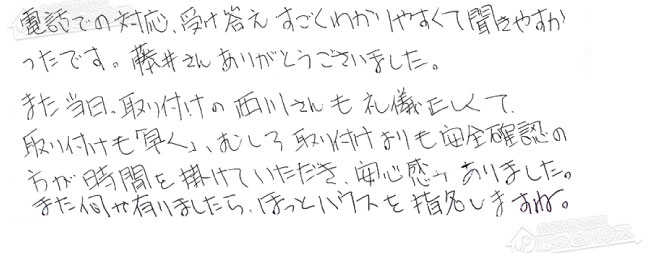 電話での対応、受け答えすごくわかりやすくて聞きやすか
ったです。藤井さんありがとうございました。
また当日、取り付けの西川さんも礼儀正しくて、
取り付けも「早く」、むしろ取り付けよりも安全確認の
方が時間を掛けていただき、安心感がありました。
また何か有りましたら、ほっとハウスを指名しますね。